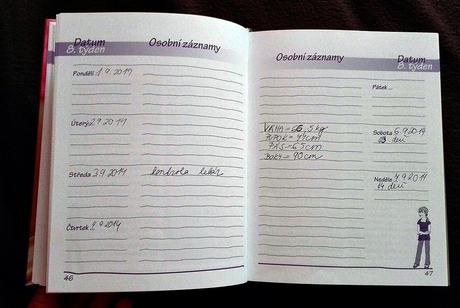 Datum
8. týden
Osobní záznamy
Pondělí 1.9.2014
Úterý 2.9.2014
Středa 3.9.2014
kontrola lékař
Čtvrtek 4.9.2014
46
Osobní záznamy
Datum
8. týden
Pátek
VÁHA = 66,5 kg
PAS = 65cm
BOKY = 90cm
Sobota 6.9.2014
dní
Neděle 7.9.2014
dní
47